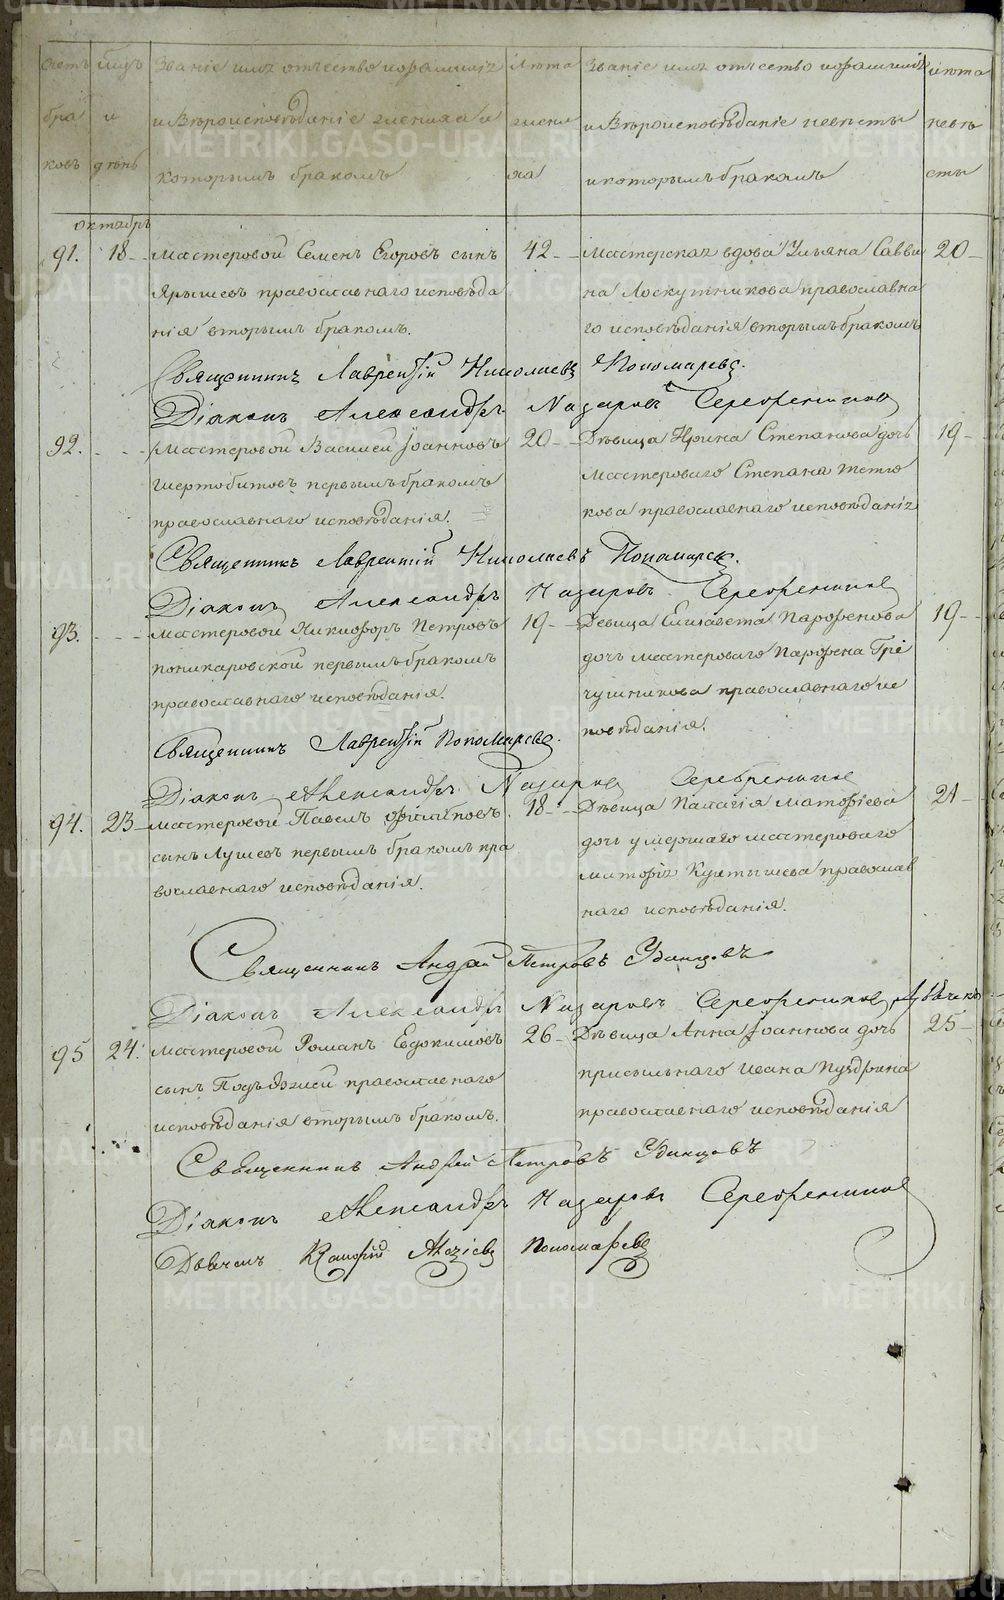 Счетъ бра ковъ
мцъ и день
Званіе имя отчество и фамилія
и Вѣроисповѣданіе жениха и
которымъ бракомъ
Лѣта жени ха
Званіе имя отчество и фамилія
и Вѣроисповѣданіе невѣсты
и которымъ бракомъ
Лѣта невѣ сты
октябрь
91. 18 Мастеровой Семенъ Егоровъ сынъ 42 Мастерская вдова Ульяна Савви 20
Ярышевъ православнаго исповѣда
на Лоскутникова православна
нія вторымъ бракомъ.
го исповѣданія вторымъ бракомъ
Священникъ Лаврентій Николаевъ Пономаревъ.
Діаконъ Александръ Назаровъ Серебренниковъ
92. Мастеровой Василей Іоанновъ 20 Дѣвица Ирина Степанова дочь 19
Шертобитовъ первымъ бракомъ
мастероваго Степана Тетю
православнаго исповѣданія.
кова православнаго исповѣданія
Священникъ Лаврентій Николаевъ Пономаревъ.
Діаконъ Александръ Назаровъ Серебренниковъ
93. Мастеровой Никифоръ Петровъ 19 Девица Елисавета Парфенова 19
поникаровской первымъ бракомъ
дочь мастероваго Парфена Грѣ
православнаго исповѣданія.
чушникова православнаго ис
повѣданія.
Священникъ Лаврентій Пономаревъ.
Діаконъ Александръ Назаровъ Серебренниковъ
94. 23 мастеровой Павелъ Филиповъ 18 Дѣвица Палагія Матфіева 21
сынъ Лушевъ первымъ бракомъ пра
дочь умершаго мастероваго
вославнаго исповѣданія.
матфія Куктышева православ
наго исповѣданія.
Священникъ Андрей Петровъ Удинцовъ
Діаконъ Александръ Назаровъ Серебренниковъ
95 24. мастеровой Романъ Евдокимовъ 26 Дѣвица Анна Іоаннова дочь 25
сынъ православнаго
присыльнаго Ивана Пундрина
исповѣданія вторымъ бракомъ.
православнаго исповѣданія
Священникъ Андрей Петровъ Удинцовъ
Діаконъ Александръ Назаровъ Серебренниковъ
Дьячекъ Пономаревъ
METRIKI.GASO-URAL.RU